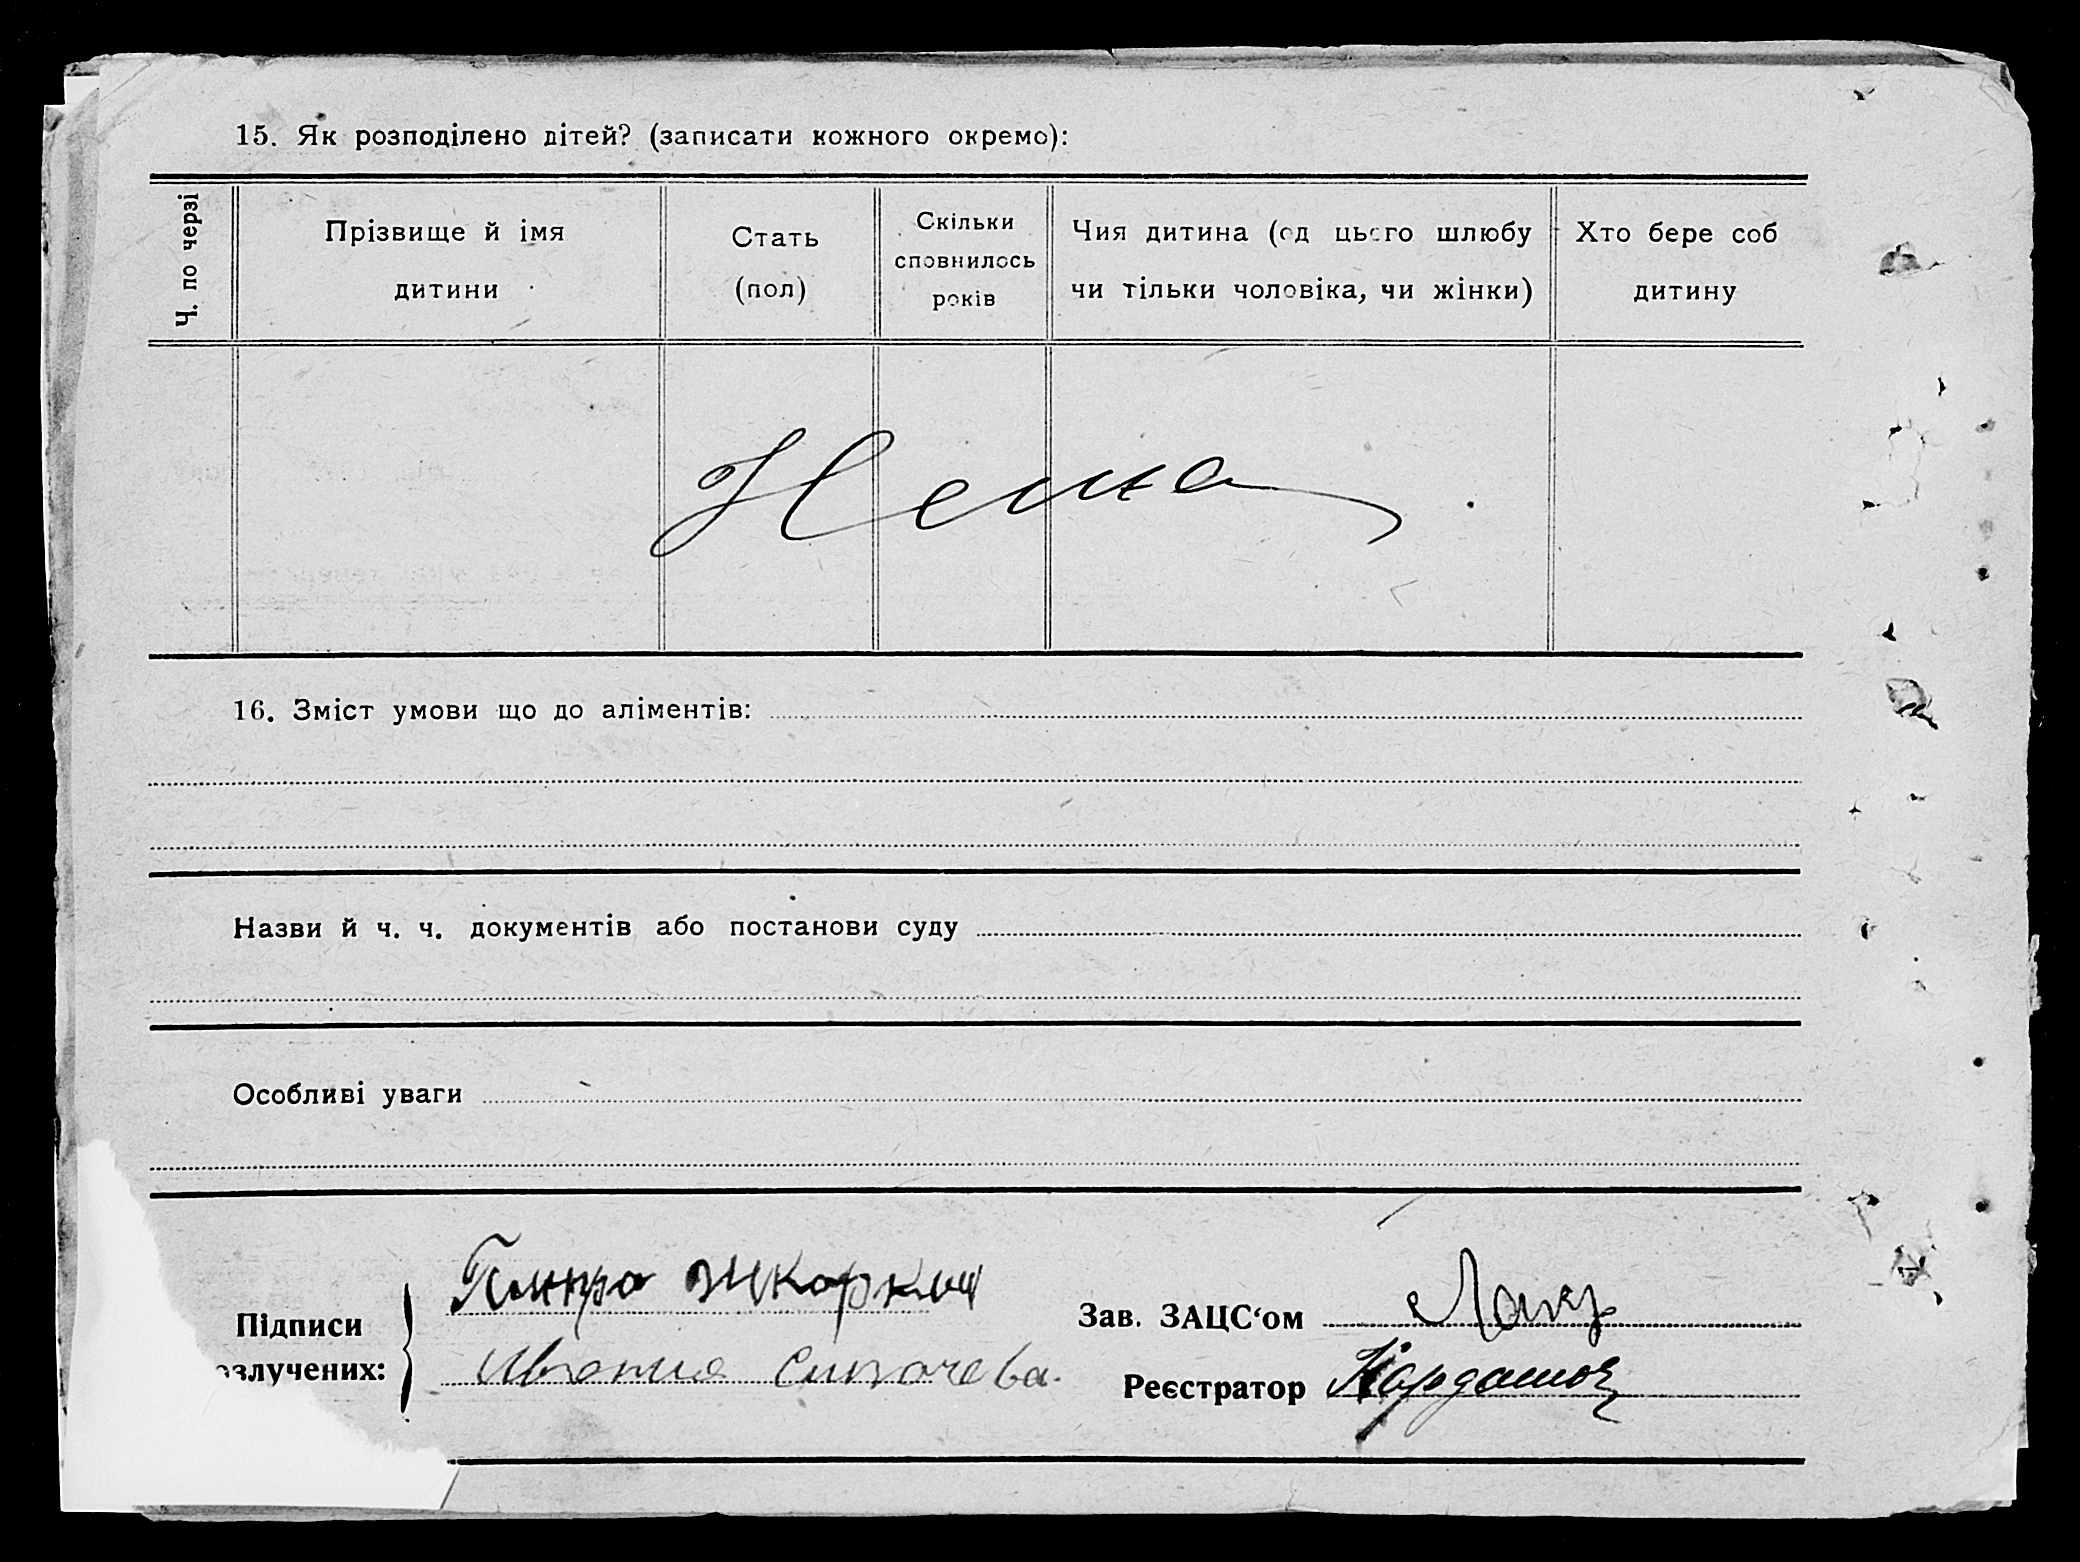 15. Як розподілено дітей? (записати кожного окремо):
Ч. по черзі
Прізвище й імя
дитини
Стать
(пол)
Скільки
сповнилось
років
Чия дитина (од цього шлюбу
чи тільки чоловіка, чи жінки)
Хто бере соб
дитину
Нема
16. Зміст умови що до аліментів:
Назви й ч. ч. документів або постанови суду
Особливі уваги
Підписи
озлучених:
Зав. ЗАЦС‘ом
Реєстратор